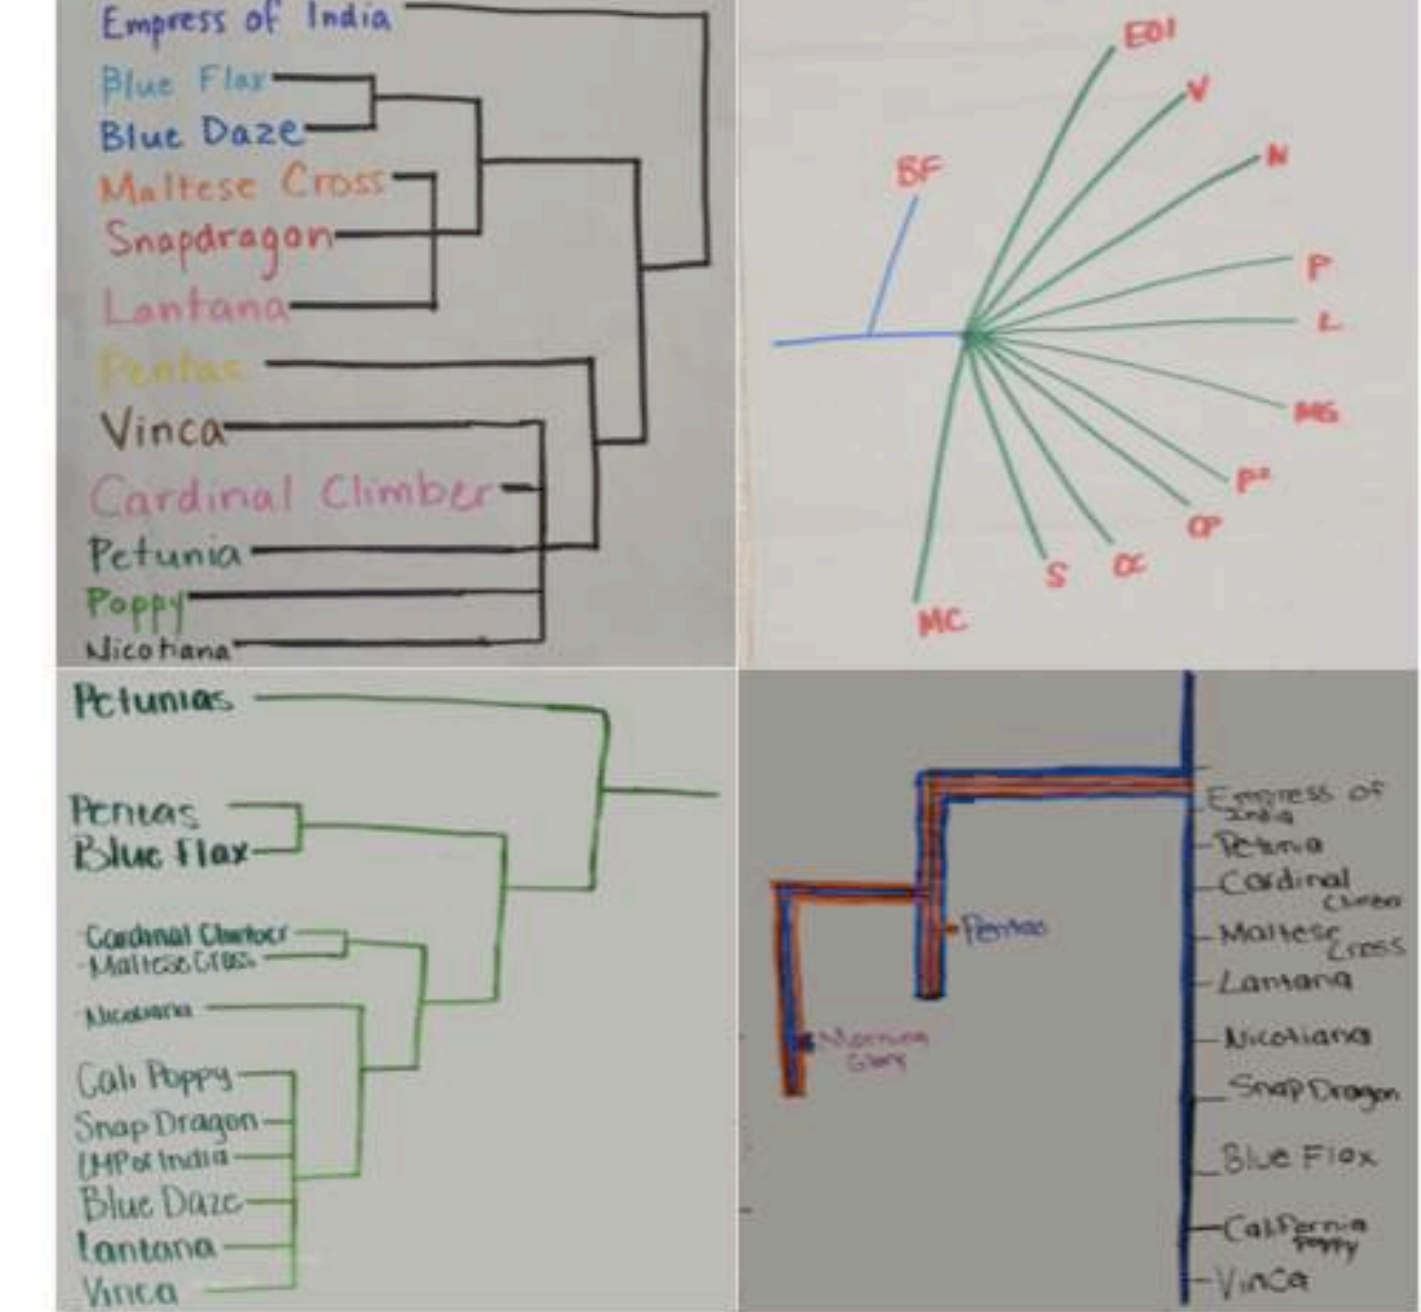 Empress of India
Blue Flax
Blue Daze
Maltese Cross
Snapdragon
Lantana
Pentas
Vinca
Cardinal Climber
Petunia
Poppy
Nicotiana
EOI
V
N
BF
P
L
MG
CP
S
MC
Petunias
Pentas
Blue Flax
Cardinal Climber
Maltese Cross
Nicotiana
Cali Poppy
Snap Dragon
EMP of India
Blue Daze
Lantana
Vinca
Empress of
India
Petunia
Cardinal
Climber
Maltese
Cross
Pentas
Lantana
Nicotiana
Morning
Glory
Snap Dragon
Blue Flax
California
Poppy
Vinca